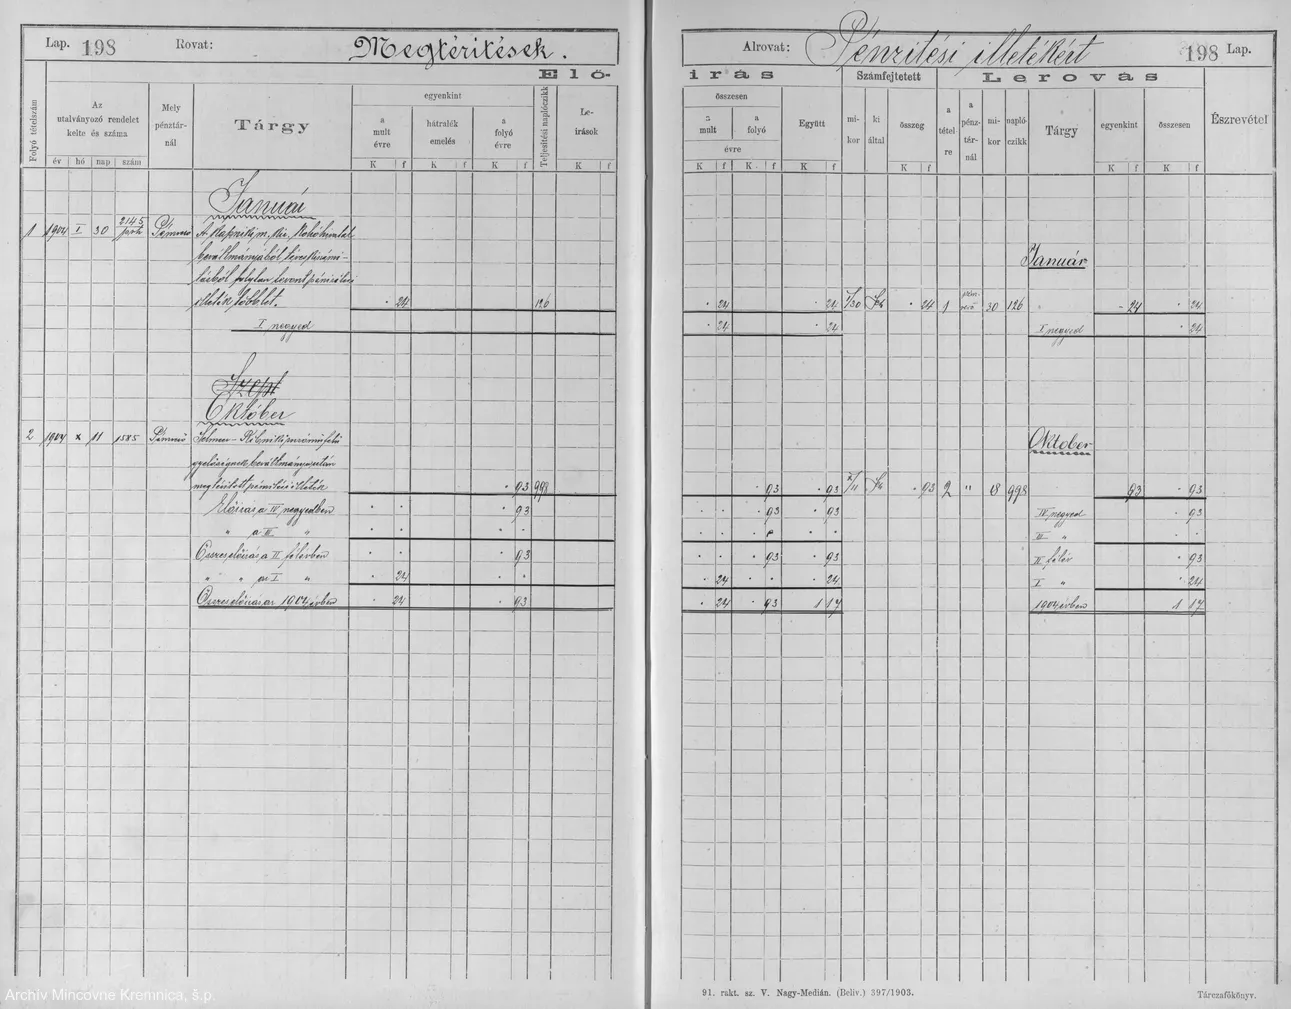 Lap. 198 Rovat: Megtérítések.
Elő-
Folyó tételszám
Az utalványozó rendelet kelte és száma
Mely pénztárnál
Tárgy
egyenkint
a mult évre
hátralék emelés
a folyó évre
Teljesítési naplóczikk
Le-irások
év hó nap szám K f K f K f K f
Január
1 1904 I 30 2145 Pénzverő A kapnik m. kir. Kohóhivatal
beváltmányából
illeték többlet. · 24 126
I negyed
Szept
Október
2 1904 X 11 1585 Pénzverő Selmecz-
beváltmánya után
megtérített pénzítési illeték · 93 998
Előírás a IV negyedben · · · 93
" a III " · · · ·
Összes előírás a II félévben · · · 93
" " az I " · 24 · ·
Összes előírás az 1904 évben · 24 · 93
Alrovat: Pénzítési illetékért 198 Lap.
irás Számfejtetett Lerovás
összesen
a mult
a folyó
évre
Együtt
mi-kor
ki által
összeg
a tétel re
a pénz-tár-nál
mi-kor
napló-czikk
Tárgy
egyenkint
összesen
Észrevétel
K f K f K f K f K f K f
Január
· 24 · 24 I/30 · 24 1 pénzverő 30 126 " - 24 · 24
· 24 · 24 I negyed · 24
Oktober
· 93 · 93 X/11 · 93 2 " 18 998 93 · 93
· · · 93 · 93 IV negyed · 93
· · · · · · III " · ·
· · · 93 · 93 II félév · 93
· 24 · · · 24 I " · 24
· 24 · 93 1 17 1904 évben 1 17
91. rakt. sz. V. Nagy-Medián. (Beliv.) 397/1903.
Tárczafőkönyv.
Archív Mincovne Kremnica, š.p.